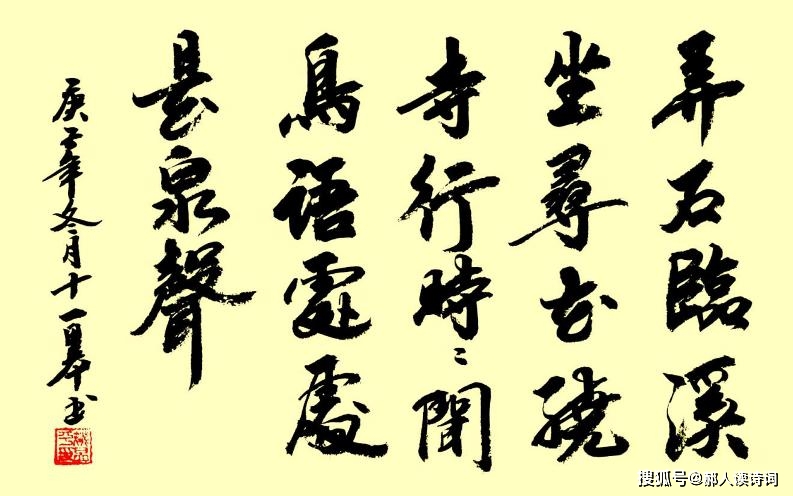 弄石臨溪
坐尋花繞
寺行時〻聞
鳥語處處
是泉聲
庚子年冬月十一日书
搜狐号@郝人读诗词